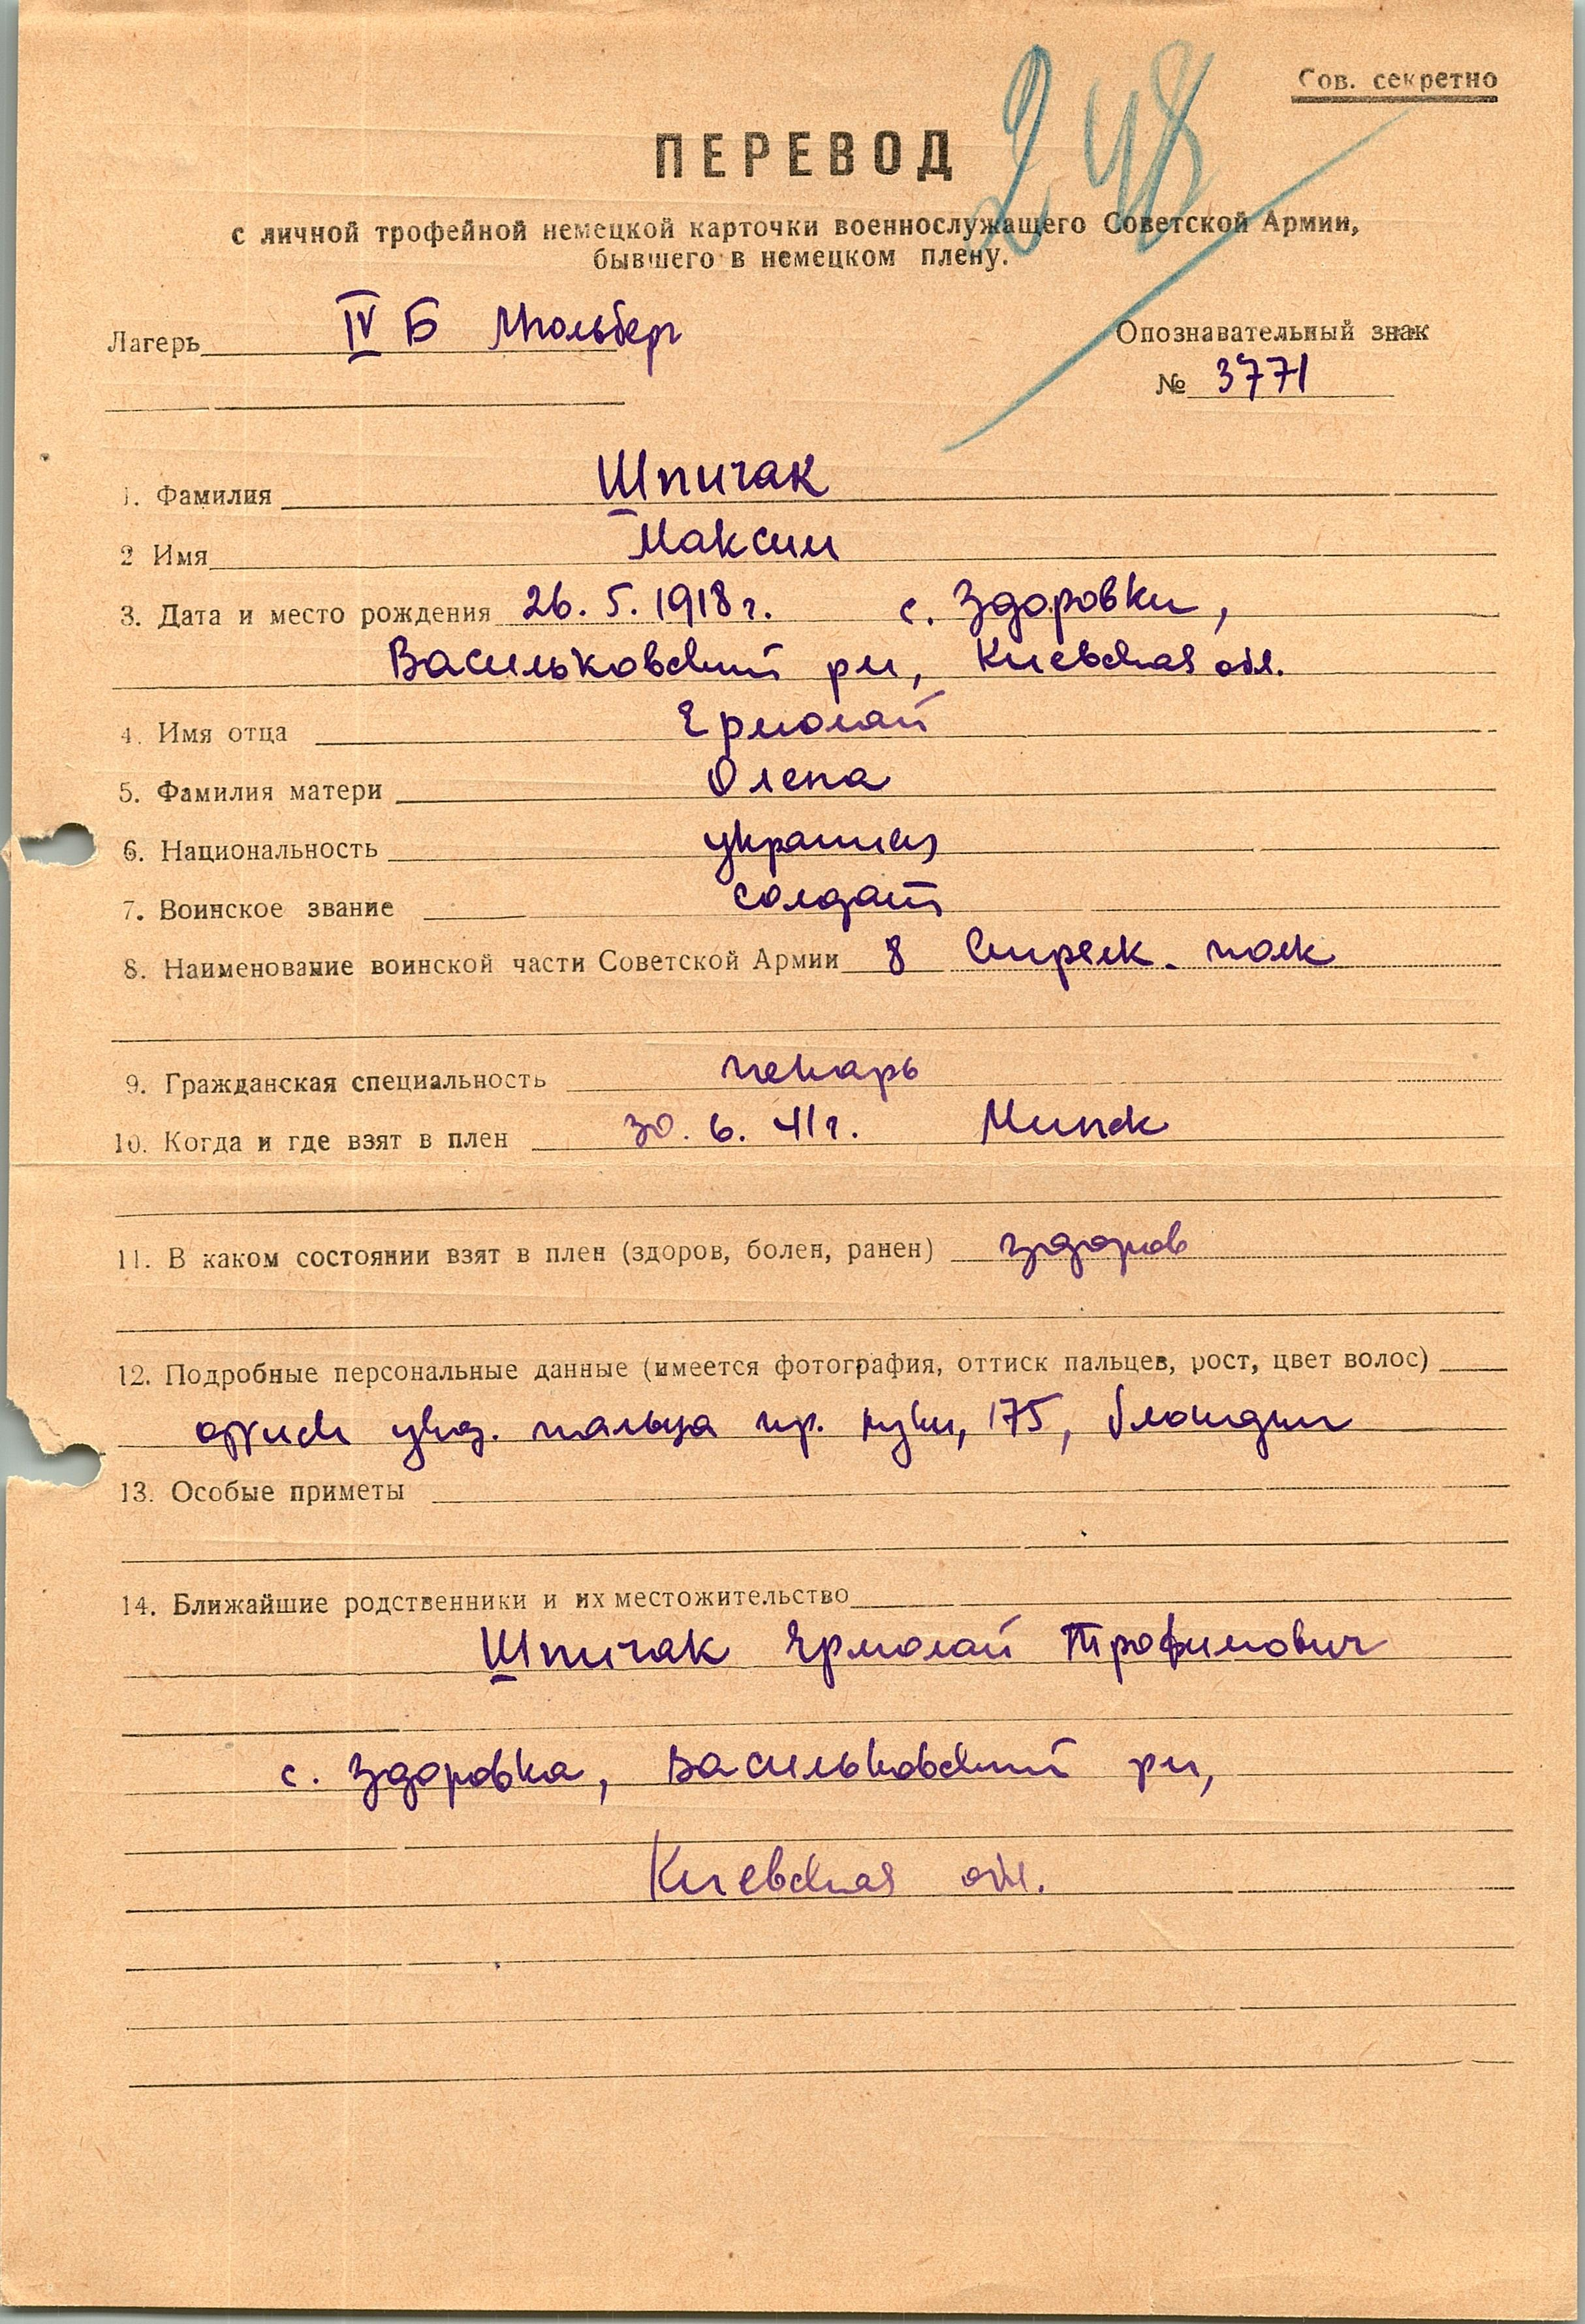 Сов. секретно
248
ПЕРЕВОД
с личной трофейной немецкой карточки военнослужащего Советской Армии,
бывшего в немецком плену.
Лагерь IV Б Мюльберг
Опознавательный знак
№ 3771
1. Фамилия Шпичак
2 Имя Максим
3. Дата и место рождения 26. 5. 1918 г. с. Здоровки,
Васильковский рн, Киевская обл.
4. Имя отца Ермолай
5. Фамилия матери Олена
6. Национальность украинец
7. Воинское звание солдат
8. Наименование воинской части Советской Армии 8 Стрелк. полк
9. Гражданская специальность пекарь
10. Когда и где взят в плен 30. 6. 41 г. Минск
11. В каком состоянии взят в плен (здоров, болен, ранен) здоров
12. Подробные персональные данные (имеется фотография, оттиск пальцев, рост, цвет волос)
указ. пальца пр. руки, 175, блондин
13. Особые приметы
14. Ближайшие родственники и их местожительство
Шпичак Ермолай Трофимович
с. Здоровка, Васильковский рн,
Киевская обл.